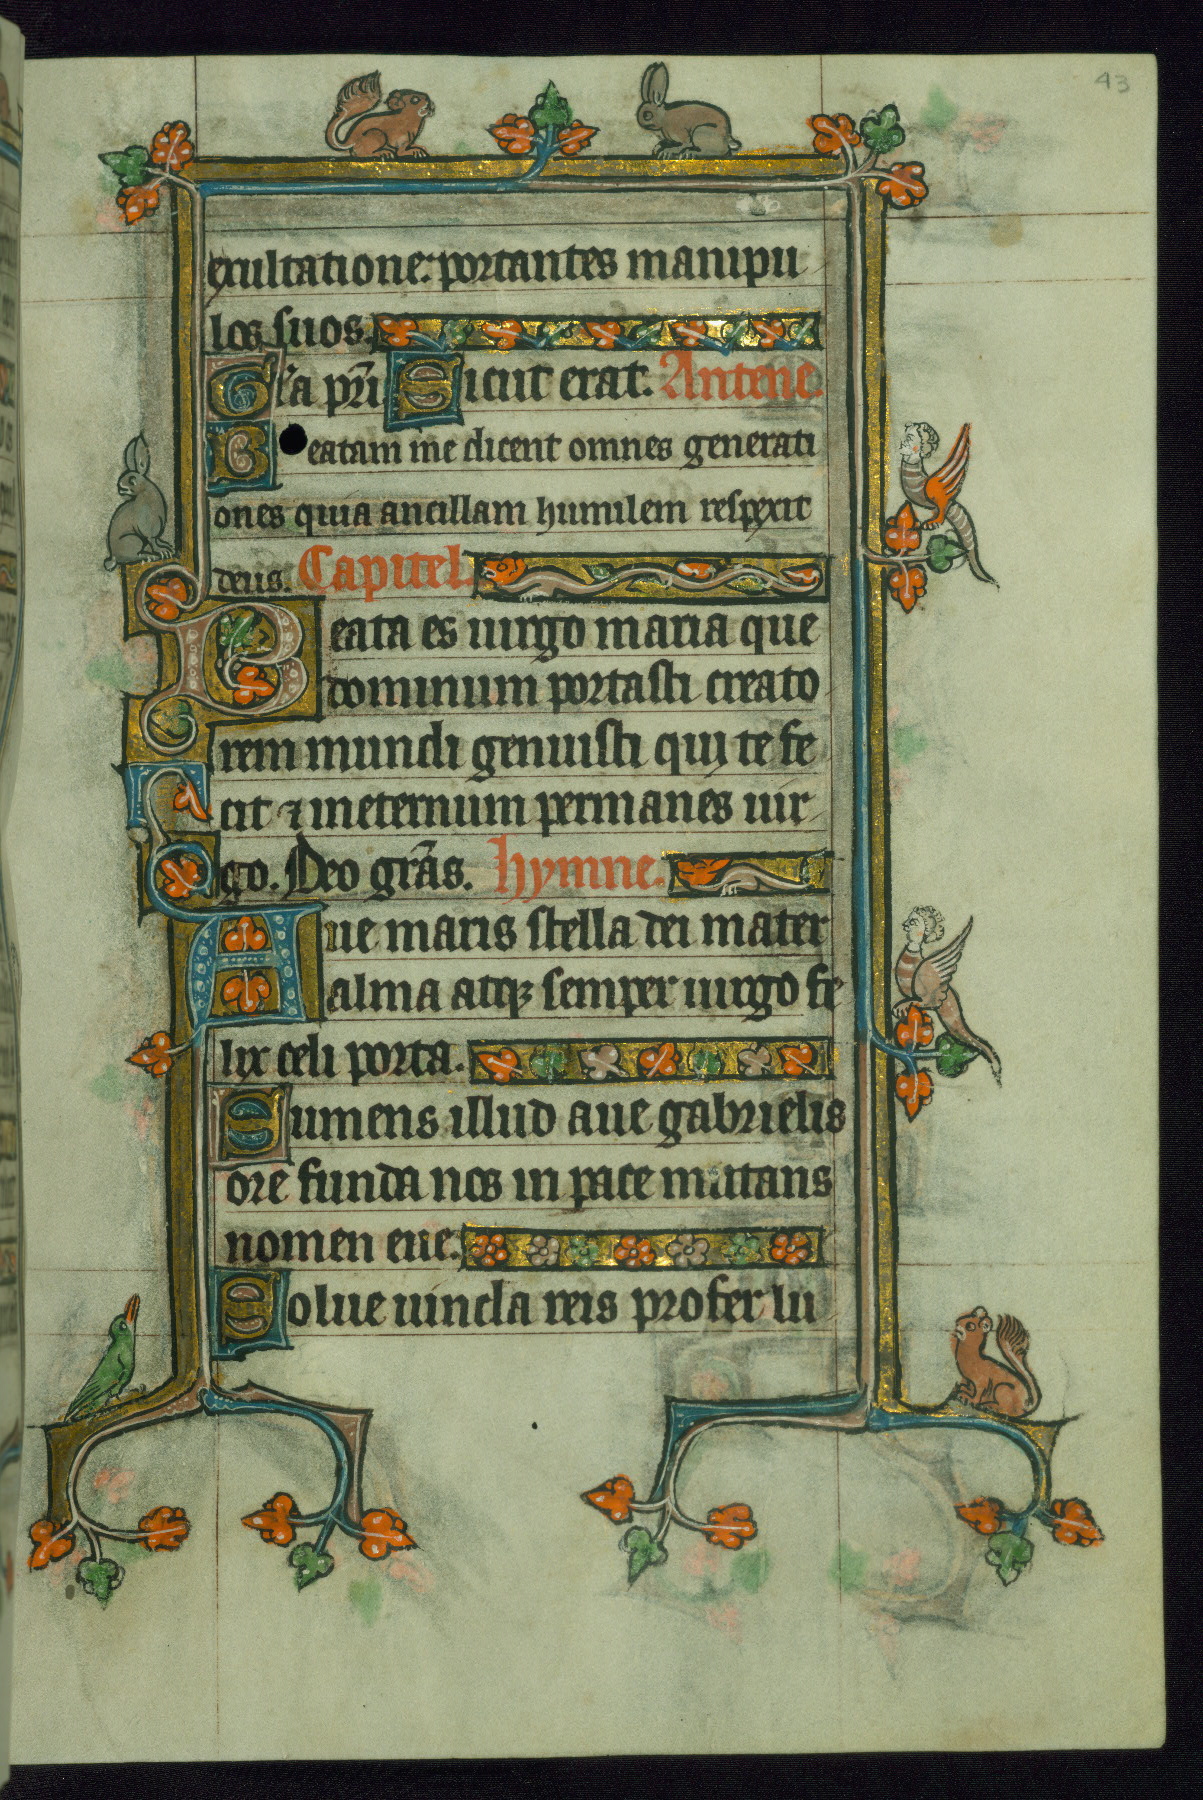 43
exultatione: portantes manipu
los suos.
Gl'a pr̄i Sicut erat. Antene.
Beatam me dicent omnes generati
ones quia ancillam humilem respexit
deus. Capitel.
Beata es uirgo maria que
dominum portasti creato
rem mundi genuisti qui te fe
cit ⁊ ineternum permanes uir
go. Deo grās. hymne.
Aue maris stella dei mater
alma atqꝫ semper uirgo fe
lix celi porta.
Sumens illud aue gabrielis
ore funda nos in pace mutans
nomen eue.
Solue uincla reis profer lu